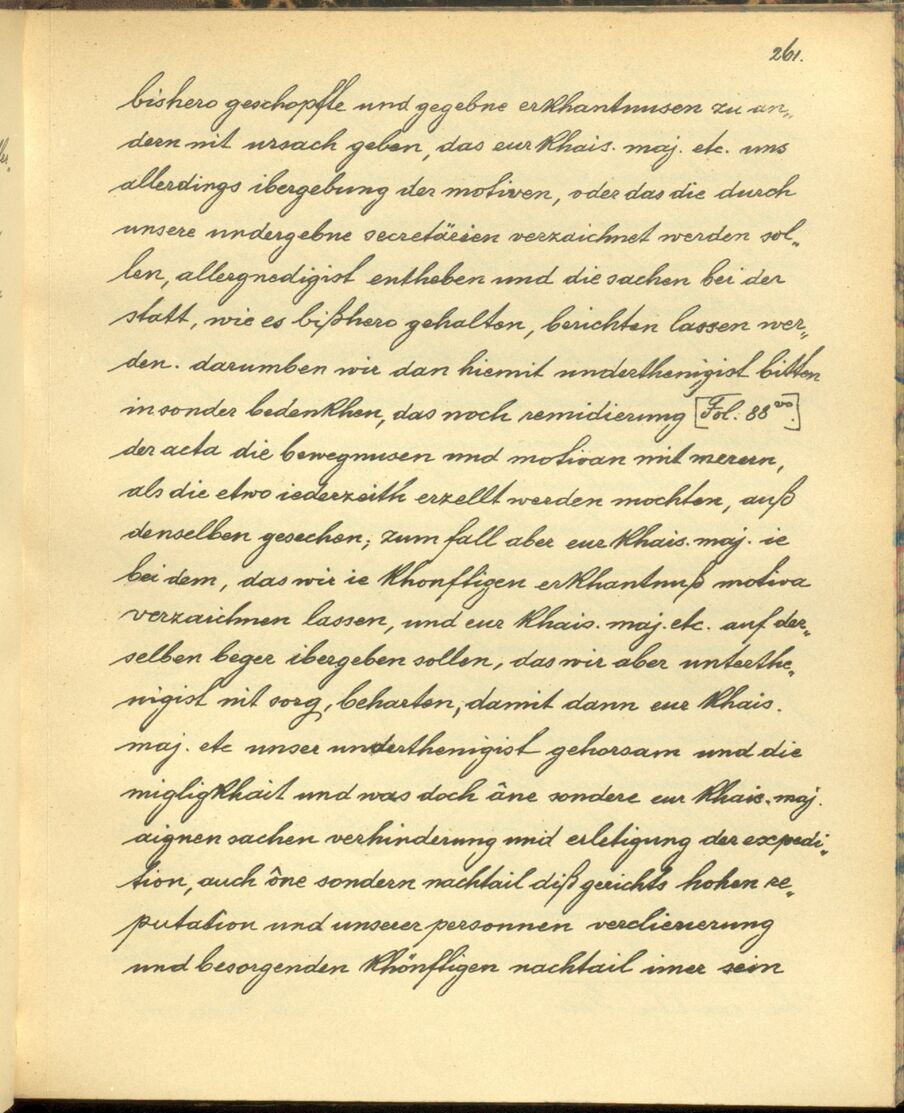 261.
bishero geschopfte und gegebne erkhantnusen zu an„
dern nit ursach geben, das eur khais. maj. etc. uns
allerdings ibergebung der motiven, oder das die durch
unsere undergebne secretärien verzaichnet werden sol„
len, allergnedigist entheben und die sachen bei der
statt, wie es bißhero gehalten, berichten lassen wer„
den. darumben wir dan hiemit underthenigist bitten
in sonder bedenkhen, das noch remidierung [Fol. 88vo.]
der acta die bewegnusen und motivan mit merern,
als die etwo iederzeith erzellt werden mochten, auß
denselben gesechen; zum fall aber eur khais. maj. ie
bei dem, das wir ie khonftigen erkhantnuß motiva
verzaichnen lassen, und eur khais. maj. etc. auf der„
selben beger ibergeben sollen, das wir aber unterthe„
nigist nit sorg, beharten, damit dann eur khais.
maj. etc unser underthenigist gehorsam und die
migligkhait und was doch âne sondere eur khais. maj.
aignen sachen verhinderung und erletigung der expedi„
tion, auch ône sondern nachtail diß gerichts hohen re„
putation und unserer personnen verclienerung
und besorgenden khönftigen nachtail imer sein